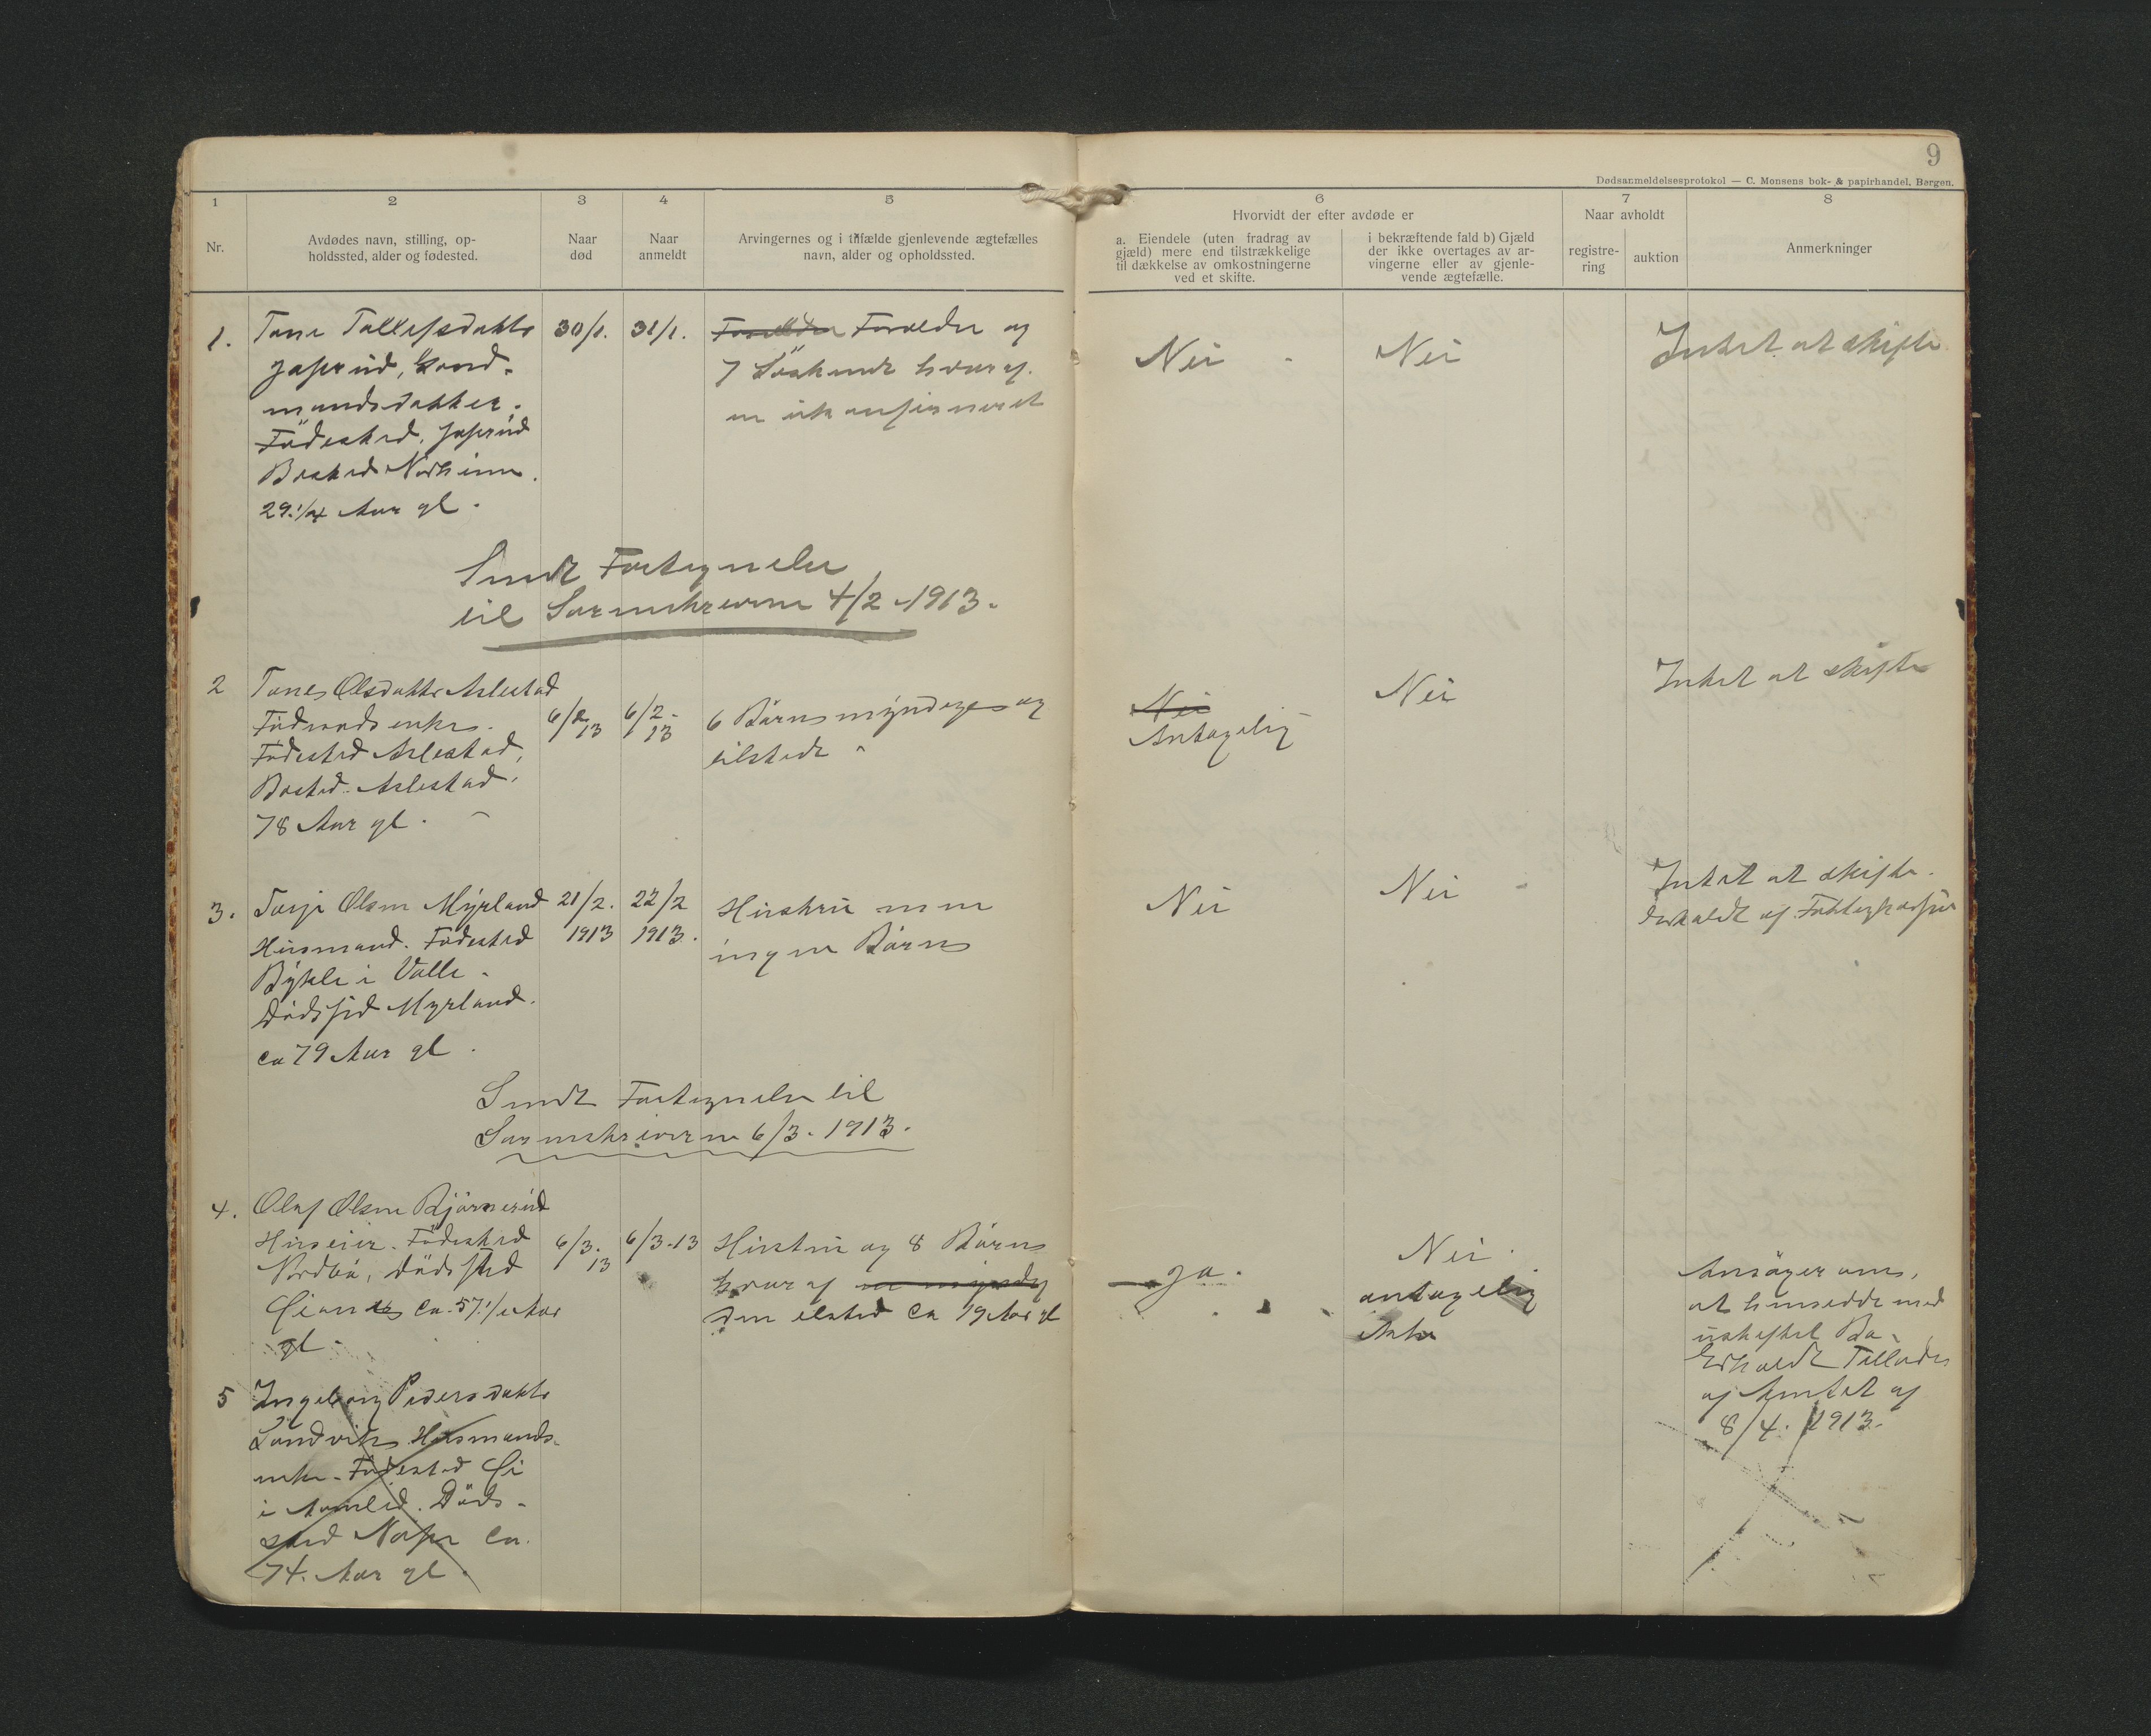 9
Dødsanmeldelsesprotokol — C. Monsens bok- & papirhandel, Bergen.
1 2 3 4 5 6 7 8
Nr.
Avdødes navn, stilling, op-
holdssted, alder og fødested.
Naar
død
Naar
anmeldt
Arvingernes og i tilfælde gjenlevende ægtefælles
navn, alder og opholdssted.
Hvorvidt der efter avdøde er
a. Eiendele (uten fradrag av
gjæld) mere end tilstrækkelige
til dækkelse av omkostningerne
ved et skifte.
i bekræftende fald b) Gjæld
der ikke overtages av ar-
vingerne eller av gjenle-
vende ægtefælle.
Naar avholdt
registre-
ring
auktion
Anmerkninger
1.
Tone Tallefsdatter
Jaserud, Gaard-
mandsdatter.
Födested. Jaserud
Bosted
29 1/4 Aar gl.
30/1.
31/1.
Foreldre og
7 Söskende hvoraf
en ikke
Nei
Nei
Intet at skifte
Sendt Fortegnelse
til Sorenskriveren 4/2 - 1913.
2
Tone Olsdatter Aslestad
Föderaadsenke.
Födested Aslestad,
Bosted Aslestad.
78 Aar gl.
6/2 13
6/2 - 13
6 Börn myndige og
tilstede
Nei
Antagelig
Nei
Intet at skifte
3.
Tarje Olsen Myrland
Husmand. Födested
Bykle i Valle.
Dödssted Myrland.
ca 79 Aar gl.
21/2.
1913
22/2
1913.
Hustru men
ingen Börn
Nei
Nei
Intet at skifte.
af
Sendt Fortegnelse til
Sorenskriveren 6/3. 1913.
4.
Olaf Olsen Björnerud
Huseier. Födested
Nordbö, Dödssted
ca. 57 1/2 Aar
gl
6/3. 13
6/3-13
Hustru og 8 Börn
hvoraf en myndig
den ca 19 Aar gl
Ja.
Nei.
antagelig
Ansöger om,
at hensidde med
uskiftet Bo.
Erholdt Tilladelse
af Amtet af
8/4. 1913.
5
Ingeborg Pedersdatter
Sandvik Husmands-
enke. Födested
i Aamlid. Döds-
sted ca.
74. Aar gl.